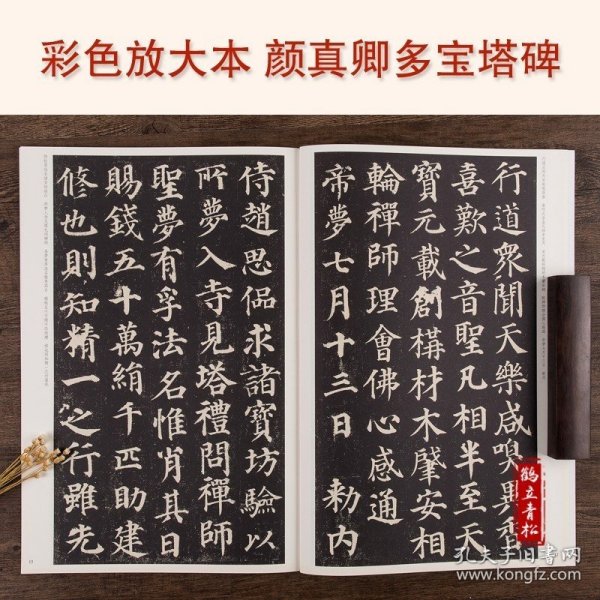 彩色放大本 颜真卿多宝塔碑
行道眾聞天樂咸嗅異
喜歎之音聖凡相半至天
寶元載創構材木肇安相
輪禪師理會佛心感通
帝夢七月十三日勅內
侍趙思偘求諸寶坊驗以
所夢入寺見塔禮問禪師
聖夢有孚法名惟肖其日
賜錢五十萬絹千匹助建
修也則知精一之行雖先
鹤立青松
孔夫子旧书网
www.kongfz.com